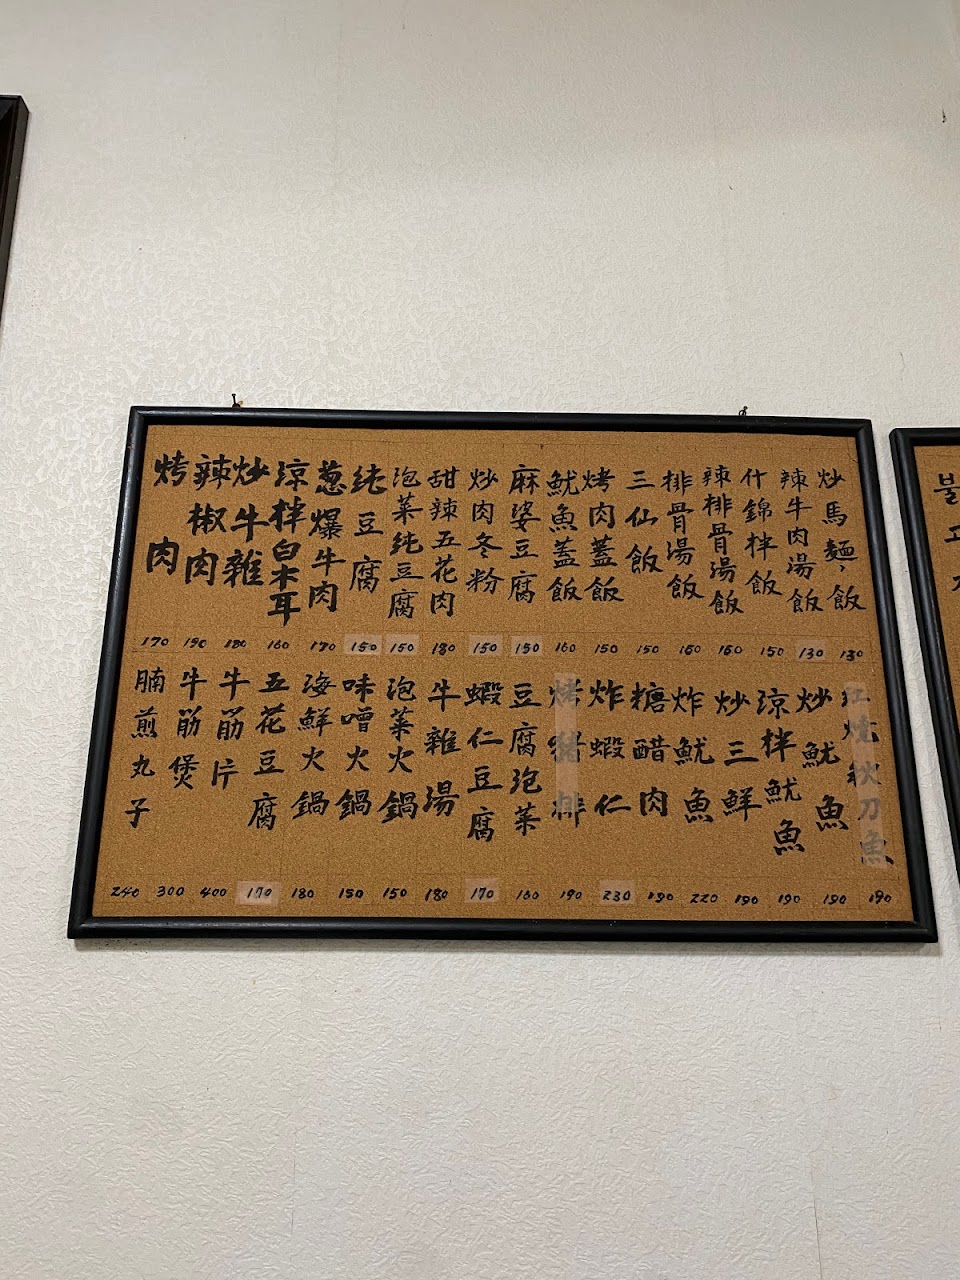 炒馬麵、飯
130
辣牛肉湯飯
130
什錦拌飯
150
辣排骨湯飯
160
排骨湯飯
160
三仙飯
150
烤肉蓋飯
150
魷魚蓋飯
160
麻婆豆腐
150
炒肉冬粉
150
甜辣五花肉
180
泡菜純豆腐
150
純豆腐
150
葱爆牛肉
170
涼拌白木耳
160
炒牛雜
180
辣椒肉
190
烤肉
170
紅燒秋刀魚
190
炒魷魚
190
涼拌魷魚
190
炒三鮮
190
炸魷魚
220
糖醋肉
190
炸蝦仁
230
烤豬排
190
豆腐泡菜
160
蝦仁豆腐
170
牛雜湯
180
泡菜火鍋
150
味噌火鍋
150
海鮮火鍋
180
五花豆腐
170
牛筋片
400
牛筋煲
300
腩煎丸子
240